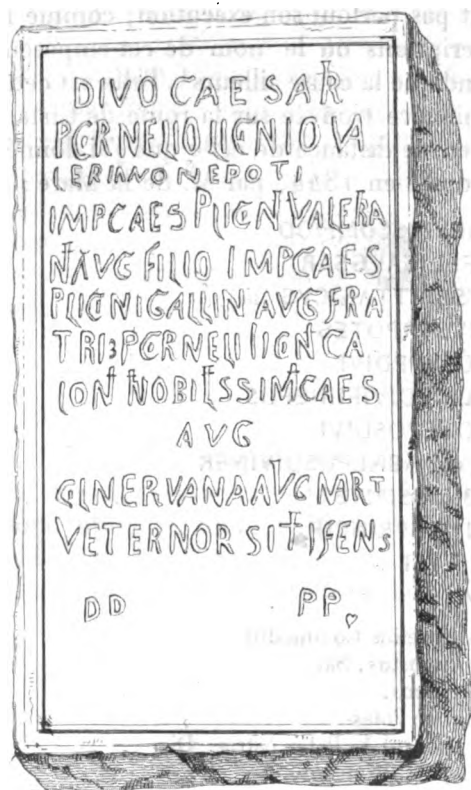 DIVO CAESAR
PCORNELIOLICNIOVA
LERIANONEPOTI
IMPCAESPLICNVALERA
NAVG FILIO IMPCAES
PLICNIGALLIN AVG FRA
TRI3PCORNELILICNCA
ION NOBILSSIMCAES
AVG
COLNERVANAAVG MRT
VETERNOR SITIFENS
DD PP